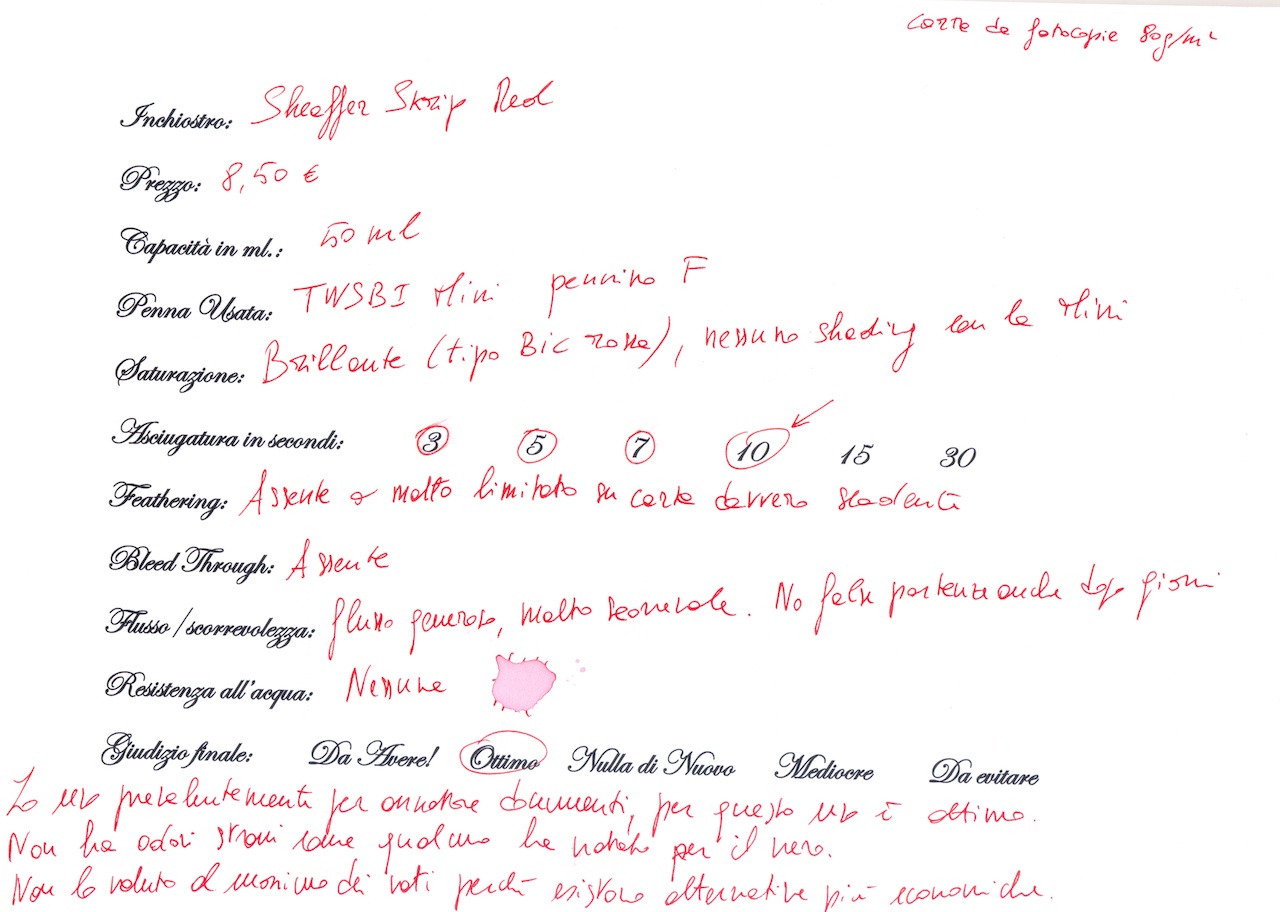 Carta da fotocopie 80g/m²
Inchiostro: Sheaffer Skrip Red
Prezzo: 8,50 €
Capacità in ml.: 50 ml
Penna Usata: TWSBI Mini pennino F
Saturazione: Brillante (tipo Bic rossa), nessuno shading con la Mini
Asciugatura in secondi: 3 5 7 10 15 30
Feathering: Assente o molto limitato su carta davvero scadente
Bleed Through: Assente
Flusso / scorrevolezza: flusso generoso, molto scorrevole. No false partenze anche dopo giorni
Resistenza all'acqua: Nessuna
Giudizio finale: Da Avere! Ottimo Nulla di Nuovo Mediocre Da evitare
Lo uso prevalentemente per annotare documenti, per questo uso è ottimo.
Non ha odori strani come qualcuno ha notato per il nero.
Non lo valuto al massimo dei voti perché esistono alternative più economiche.